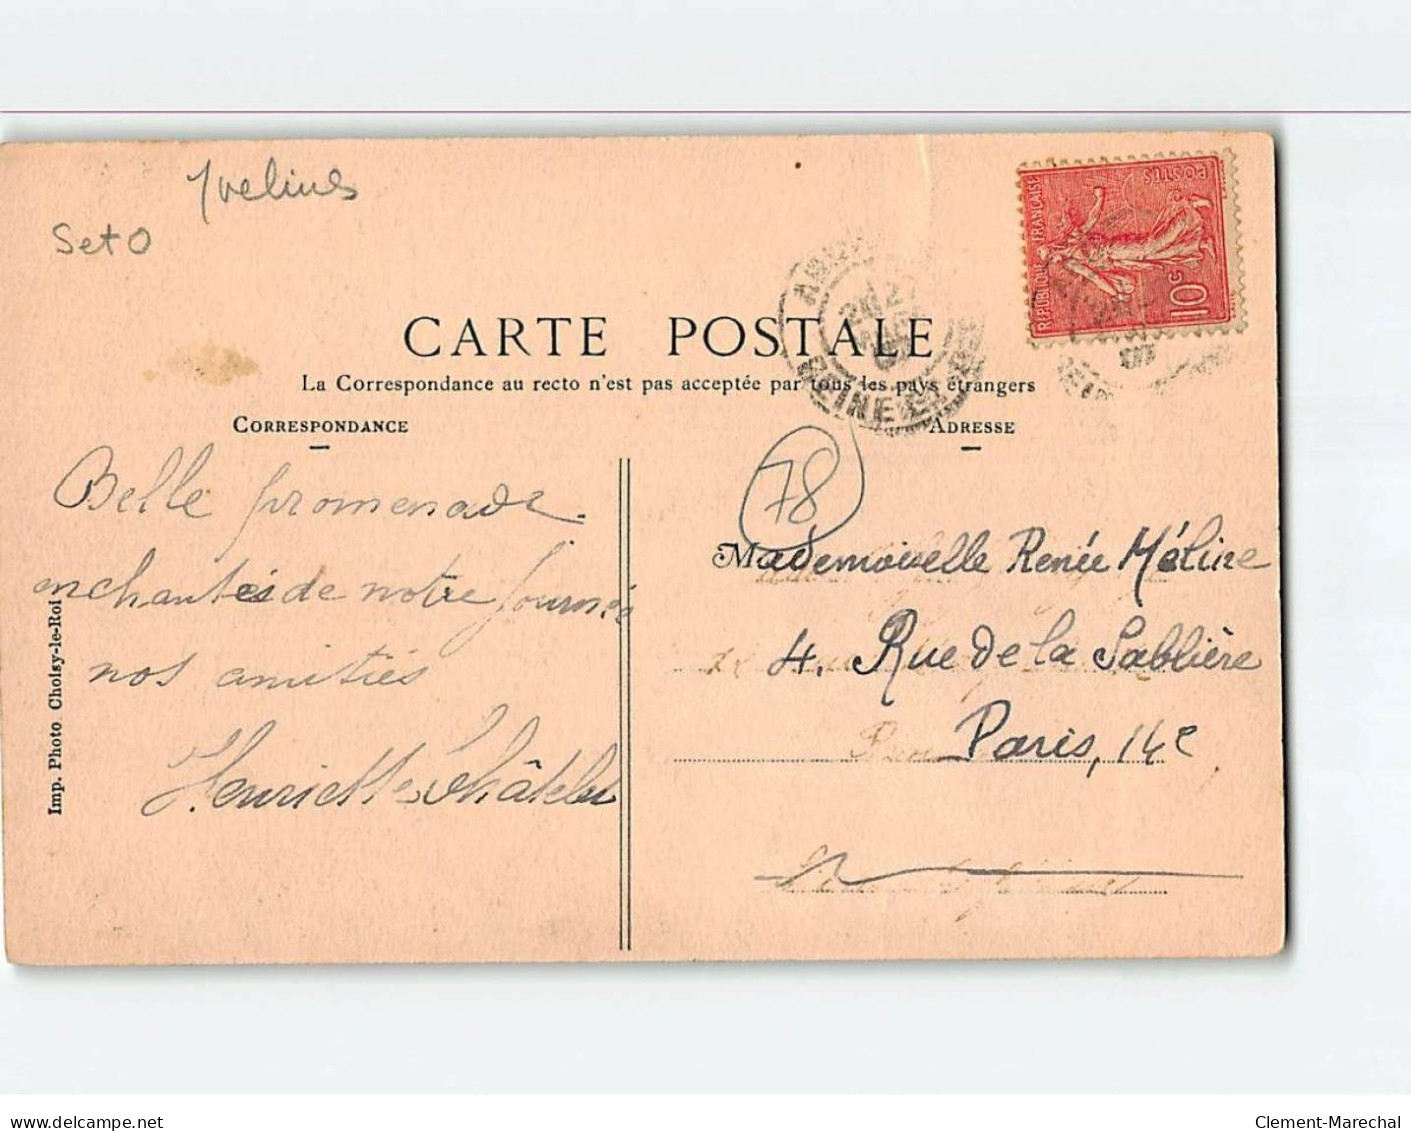 Yvelines
Set O
POSTES
RÉPUBLIQUE FRANÇAISE
10c
CARTE POSTALE
La Correspondance au recto n'est pas acceptée par tous les pays étrangers
CORRESPONDANCE
ADRESSE
78
Belle promenade
enchantés de notre journée
nos amitiés
Henriette Châtelet
Mademoiselle Renée Méline
4. Rue de la Sablière
Paris, 14e
Imp. Photo Choisy-le-Roi
delcampe.net
Clement-Marechal